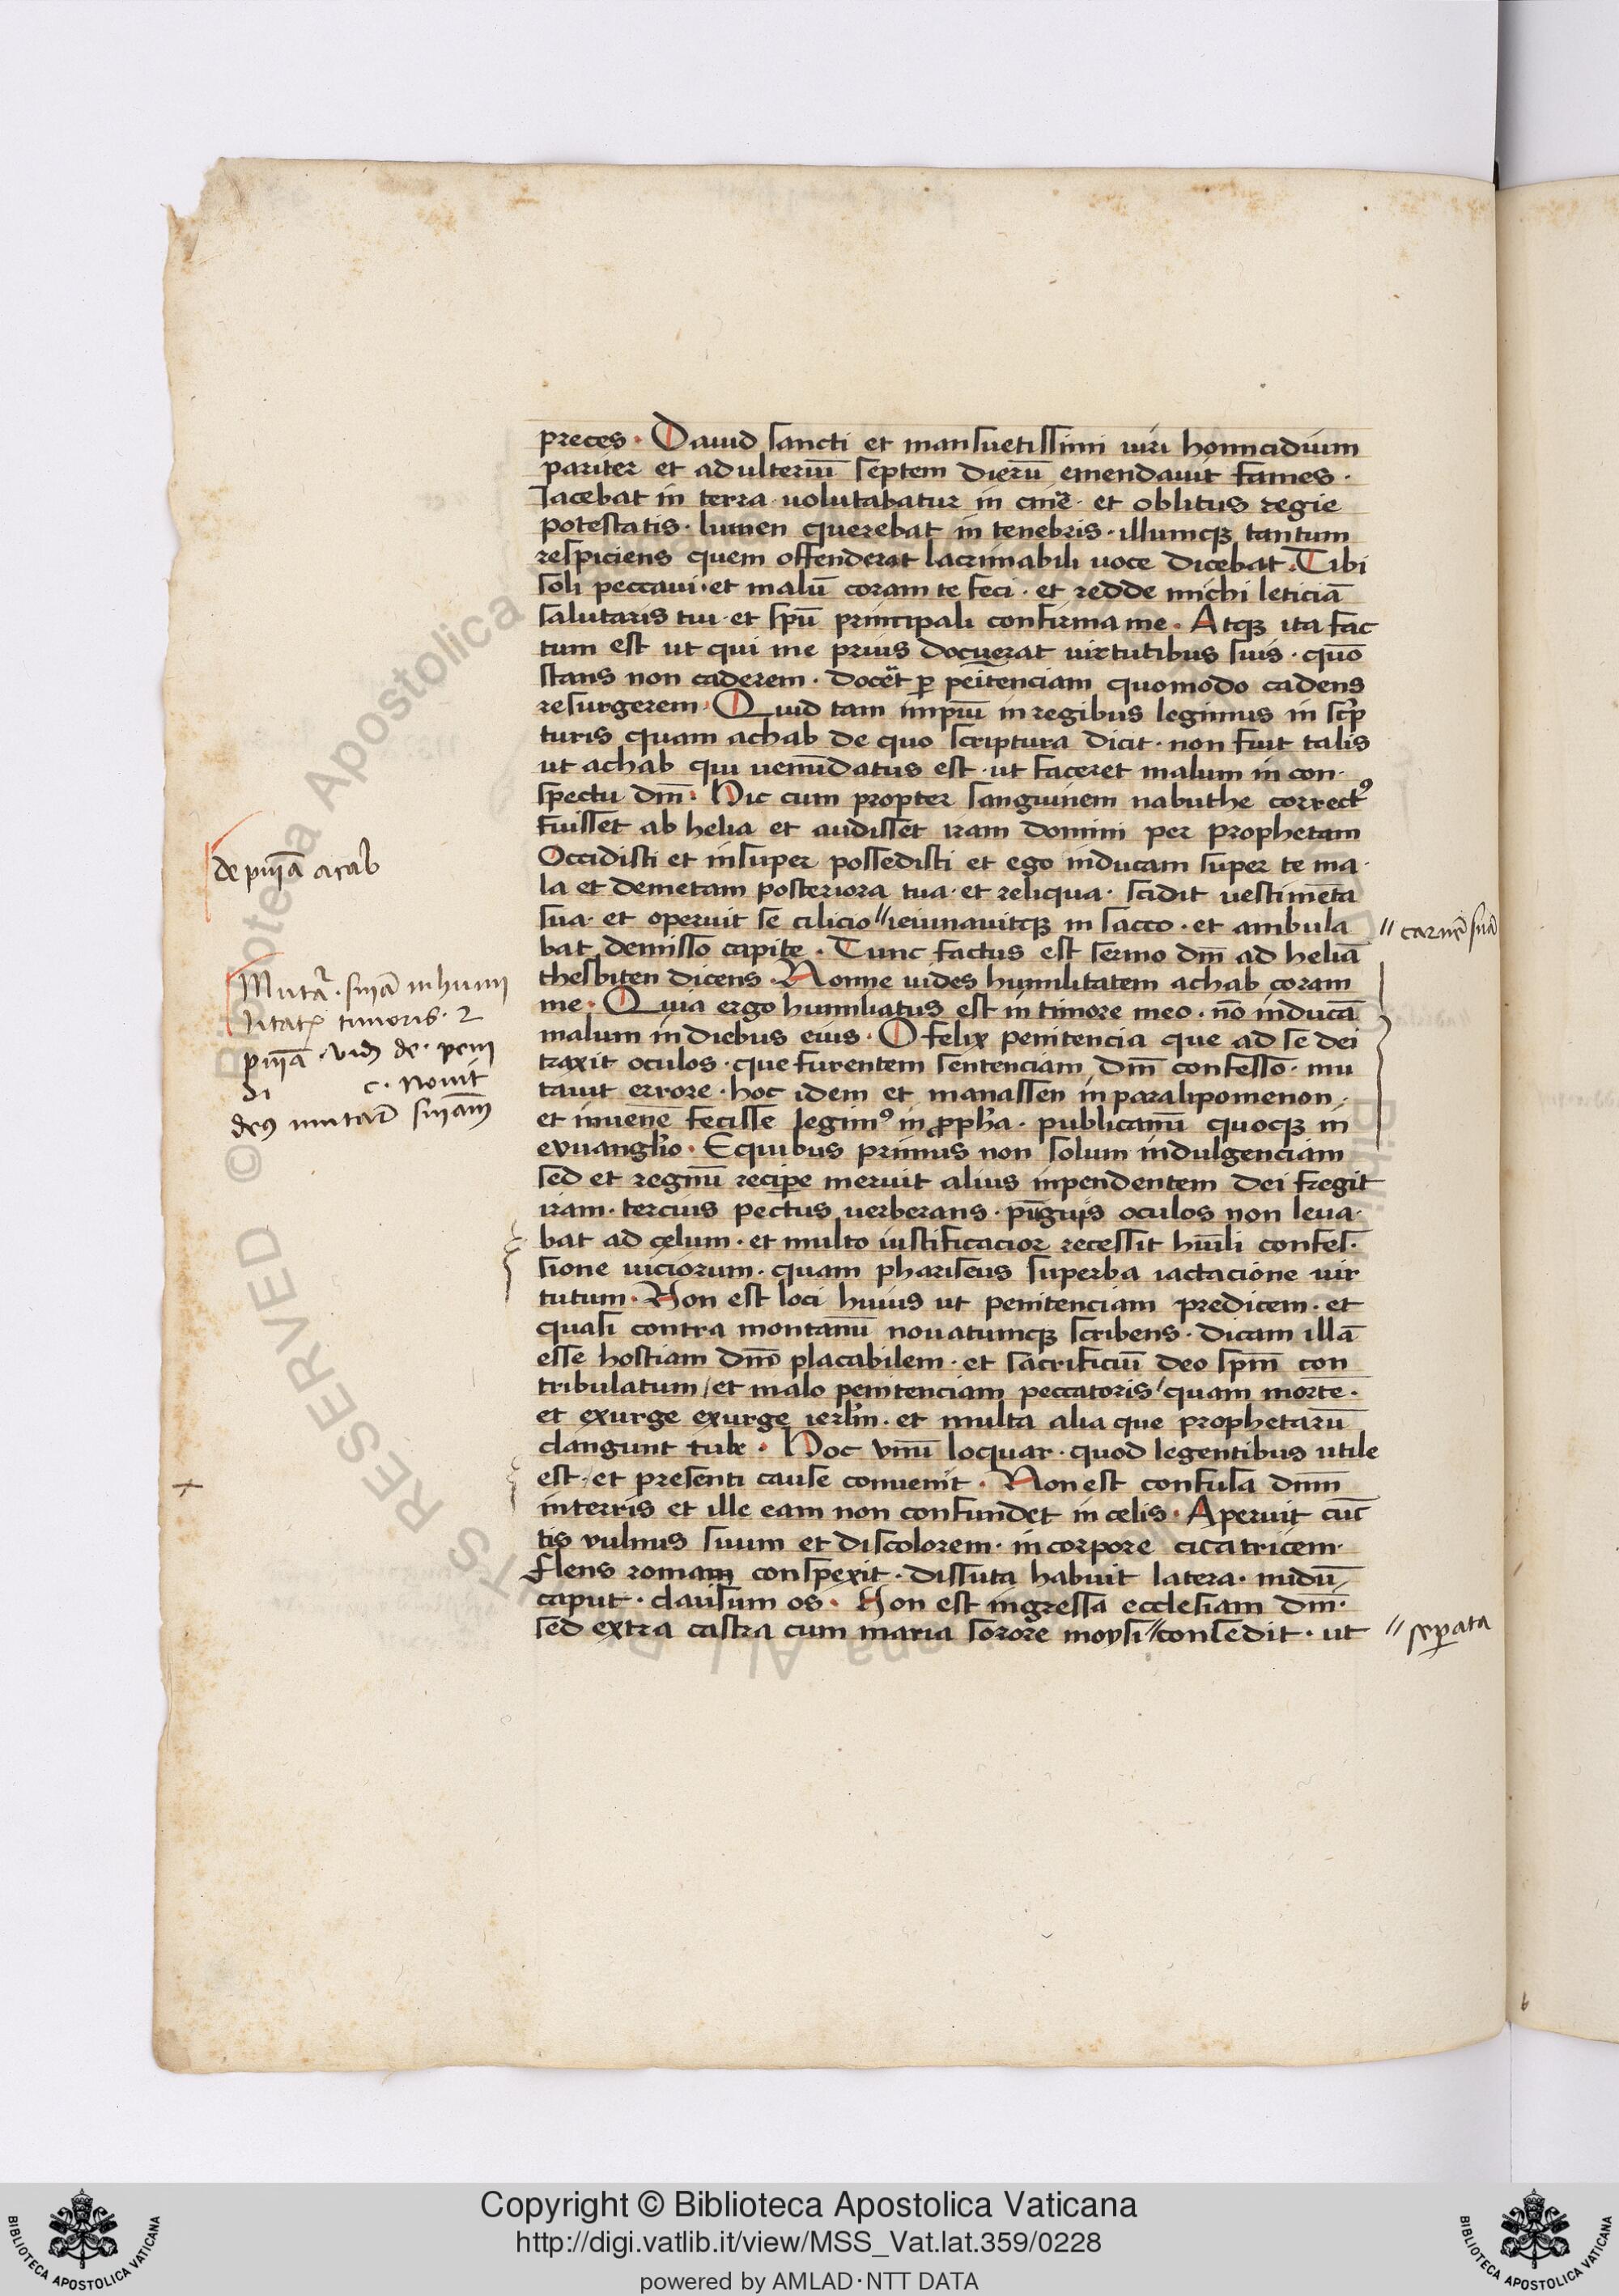 preces · Dauid sancti et mansuetissimi uiri homicidium
pariter et adulteriū septem dierū emendauit fames ·
Iacebat in terra uolutabatur in cinē · et oblitus regie
potestatis · lumen querebat in tenebris · illumqꝫ tantum
respiciens quem offenderat lacrimabili uoce dicebat · Tibi
soli peccaui · et malū coram te feci · et redde michi leticiā
salutaris tui · et spū principali confirma me · Atqꝫ ita fac
tum est ut qui me prius docuerat uirtutibus suis · quō
stans non caderem · docēt ꝑ peitenciam quomodo cadens
resurgerem · Quid tam impiū in regibus legimus in scͥp
turis quam achab de quo scriptura dicit · non fuit talis
ut achab qui uenūdatus est · ut faceret malum in con·
spectu dm̄ · Hic cum propter sanguinem nabuthe correctꝰ
fuisset ab helia et audisset iram domini per prophetam
Occidisti et insuper possedisti et ego inducam super te ma·
la et demetam posteriora tua · et reliqua · scidit uestimēta
sua · et operuit se cilicio // ieiunauitqꝫ in sacco · et ambula
// carnē suā
bat demisso capite · Tunc factus est sermo dm̄ ad heliā
thesbiten dicens · Nonne uides humilitatem achab coram
me · Quia ergo humiliatus est in timore meo · nō inducā
malum in diebus eius · O felix penitencia que ad se dei
traxit oculos · que furentem sentenciam dm̄ confesso · mu
tauit errore · hoc idem et manassen in paralipomenon ·
et inuenē fecisse legimꝰ in ꝓpha · publicanū quoqꝫ in
euuanglͥo · E quibus primus non solum indulgenciam
sed et regnū reciꝑe meruit alius inpendentem dei fregit
iram · tercius pectus uerberans · pīguis oculos non leua·
bat ad celum · et multo iustificacior recessit hūili confes·
sione uiciorum · quam phariseus superba iactacione uir
tutum · Non est loci huius ut penitenciam predicem · et
quasi contra montanū nouatumqꝫ scribens · dicam illā
esse hostiam dm̄ placabilem · et sacrificiū deo spm̄ con
tribulatum / et malo penitenciam peccatoris / quam mortē ·
et exurge exurge ierl̄m · et multa alia que prophetarū
clangunt tube · Hoc vnū loquar · quod legentibus utile
est · et presenti cause conuenit · Non est confusa dnm̄
in terris et ille eam non confundet in celis · Aperuit cūc
tis vulnus suum et discolorem · in corpore cicatricem ·
flens romam conspexit · dissuta habuit latera · nudū
caput · clausum os · Non est ingressa ecclesiam dm̄ ·
sed extra castra cum maria sorore moysi // consedit · ut
// seꝑata
de pn̄iā acab
Mutat̄ · sn̄iā in humi
litatē timoris · 2
pn̄iā · vid de · peni
di c · nouit
deꝰ mutare sn̄iam